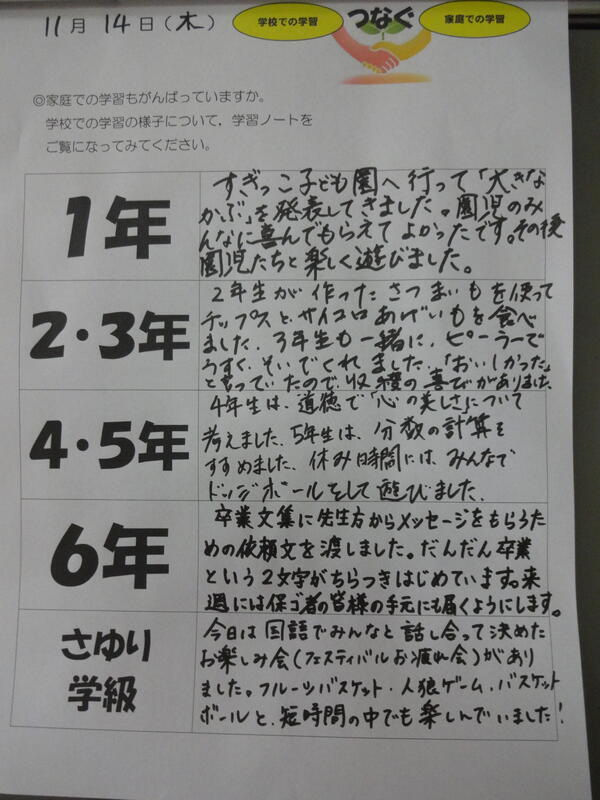 11月 14日(木)
学校での学習
つなぐ
家庭での学習
◎家庭での学習もがんばっていますか。
学校での学習の様子について,学習ノートを
ご覧になってみてください。
1年
すぎっこ子ども園へ行って「大きな
かぶ」を発表してきました。園児のみ
んなに喜んでもらえてよかったです。その後
園児たちと楽しく遊びました。
2・3年
2年生が作ったさつまいもを使って
チップスとサイコロあげいもを食べ
ました。3年生も一緒に、ピーラーで
うすくそいでくれました。「おいしかった」
と言っていたので、収穫の喜びがありました。
4・5年
4年生は、道徳で「心の美しさ」について
考えました。5年生は、分数の計算を
すすめました。休み時間には、みんなで
ドッジボールをして遊びました。
6年
卒業文集に先生方からメッセージをもらうた
めの依頼文を渡しました。だんだん卒業
という2文字がちらつきはじめています。来
週には保ゴ者の皆様の手元にも届くようにします。
さゆり
学級
今日は国語でみんなと話し合って決めた
お楽しみ会(フェスティバルお疲れ会)があり
ました。フルーツバスケット・人狼ゲーム・バスケット
ボールと、短時間の中でも楽しんでいました!